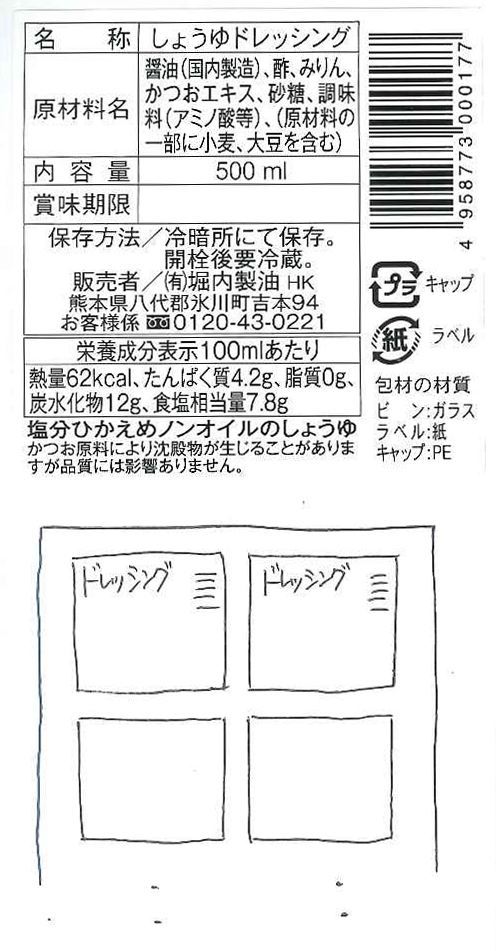 名称 しょうゆドレッシング
原材料名 醤油(国内製造)、酢、みりん、
かつおエキス、砂糖、調味
料(アミノ酸等)、(原材料の
一部に小麦、大豆を含む)
内容量 500 ml
賞味期限
保存方法/冷暗所にて保存。
開栓後要冷蔵。
販売者/㈲堀内製油 HK
熊本県八代郡氷川町吉本94
お客様係 0120-43-0221
栄養成分表示100mlあたり
熱量62kcal、たんぱく質4.2g、脂質0g、
炭水化物12g、食塩相当量7.8g
塩分ひかえめノンオイルのしょうゆ
かつお原料により沈殿物が生じることがありま
すが品質には影響ありません。
4 958773 000177
プラ キャップ
紙 ラベル
包材の材質
ビン:ガラス
ラベル:紙
キャップ:PE
ドレッシング
ドレッシング